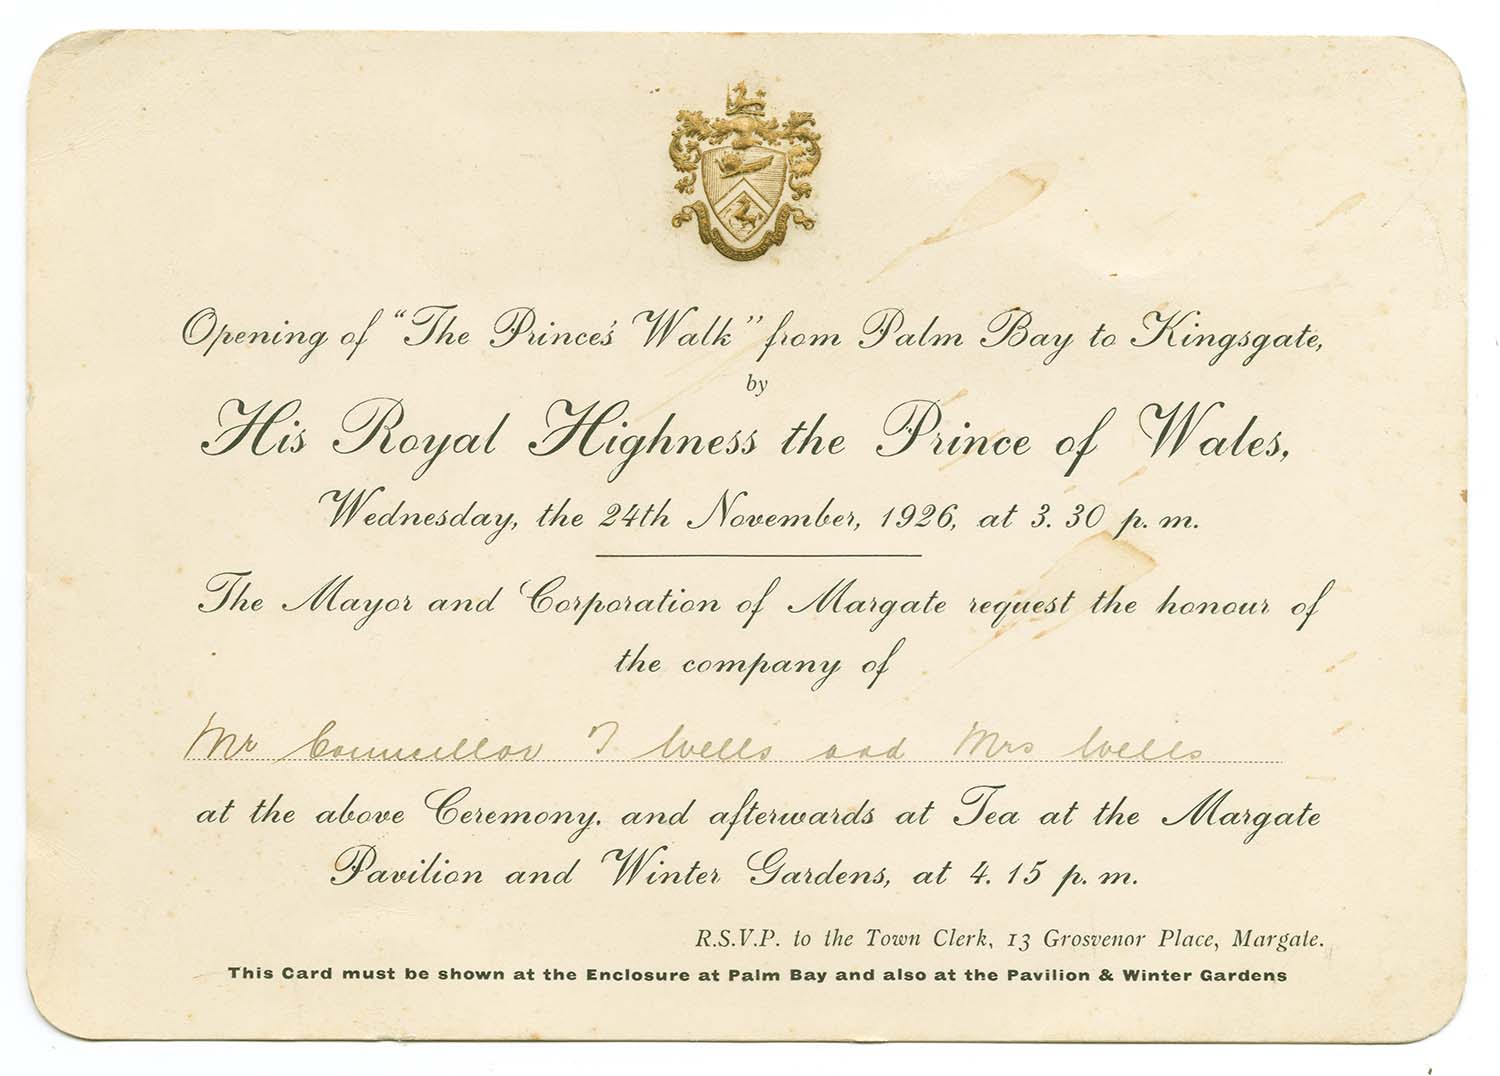 Opening of "The Prince's Walk" from Palm Bay to Kingsgate,
by
His Royal Highness the Prince of Wales,
Wednesday, the 24th November, 1926, at 3.30 p.m.
The Mayor and Corporation of Margate request the honour of
the company of
Mr Councillor T Wells and Mrs Wells
at the above Ceremony, and afterwards at Tea at the Margate
Pavilion and Winter Gardens, at 4.15 p.m.
R.S.V.P. to the Town Clerk, 13 Grosvenor Place, Margate.
This Card must be shown at the Enclosure at Palm Bay and also at the Pavilion & Winter Gardens